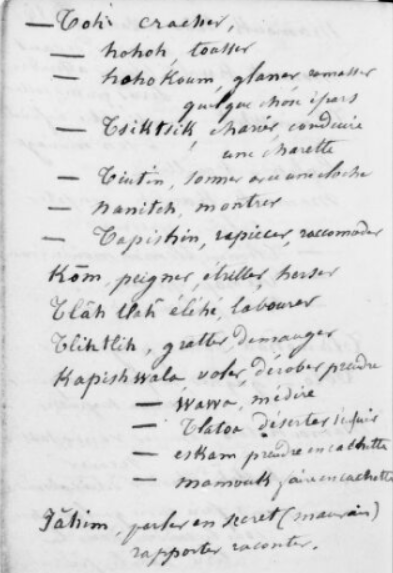 — Toh cracher,
— hohoh tousser
— hoho Koum, glaner ramasser
quelque chose épars
— Tsiktsik charier, conduire
une charette
— Tintin, sonner avec une cloche
— nanitch, montrer
— Tapishin, rapiecer, raccomoder
Kom, peigner, étriller, herser
Tlăh tlah éléhé, labourer
Tlihtlih, gratter demanger
Kapishwala voler, dérober prendre
— wawa, médire
— Tlatoa déserter s'enfuir
— eskam prendre en cachette
— mamouk faire en cachette
parler en secret (mauvais)
rapporter raconter.